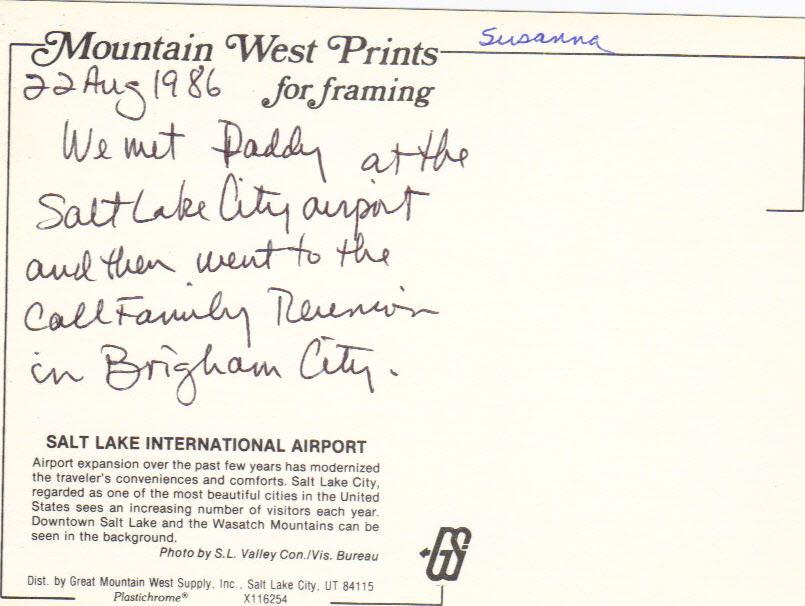 Mountain West Prints
Susanna
for framing
22 Aug 1986
We met Daddy at the
Salt Lake City airport
and then went to the
Call Family Reunion
in Brigham City.
SALT LAKE INTERNATIONAL AIRPORT
Airport expansion over the past few years has modernized
the traveler's conveniences and comforts. Salt Lake City,
regarded as one of the most beautiful cities in the United
States sees an increasing number of visitors each year.
Downtown Salt Lake and the Wasatch Mountains can be
seen in the background.
Photo by S.L. Valley Con./Vis. Bureau
GS
Dist. by Great Mountain West Supply, Inc., Salt Lake City, UT 84115
Plastichrome® X116254